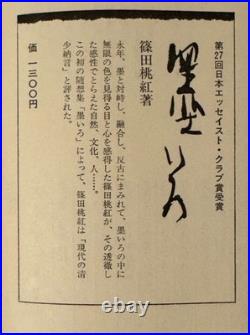 第27回日本エッセイスト・クラブ賞受賞
墨いろ
篠田桃紅著
永年、墨と対峙し、融合し、反古にまみれて、墨いろの中に
無限の色を見得る目と心を感得した篠田桃紅が、その透徹し
た感性でとらえた自然、文化、人……。
この初の随想集「墨いろ」によって、篠田桃紅は「現代の清
少納言」と評された。
価 一三〇〇円